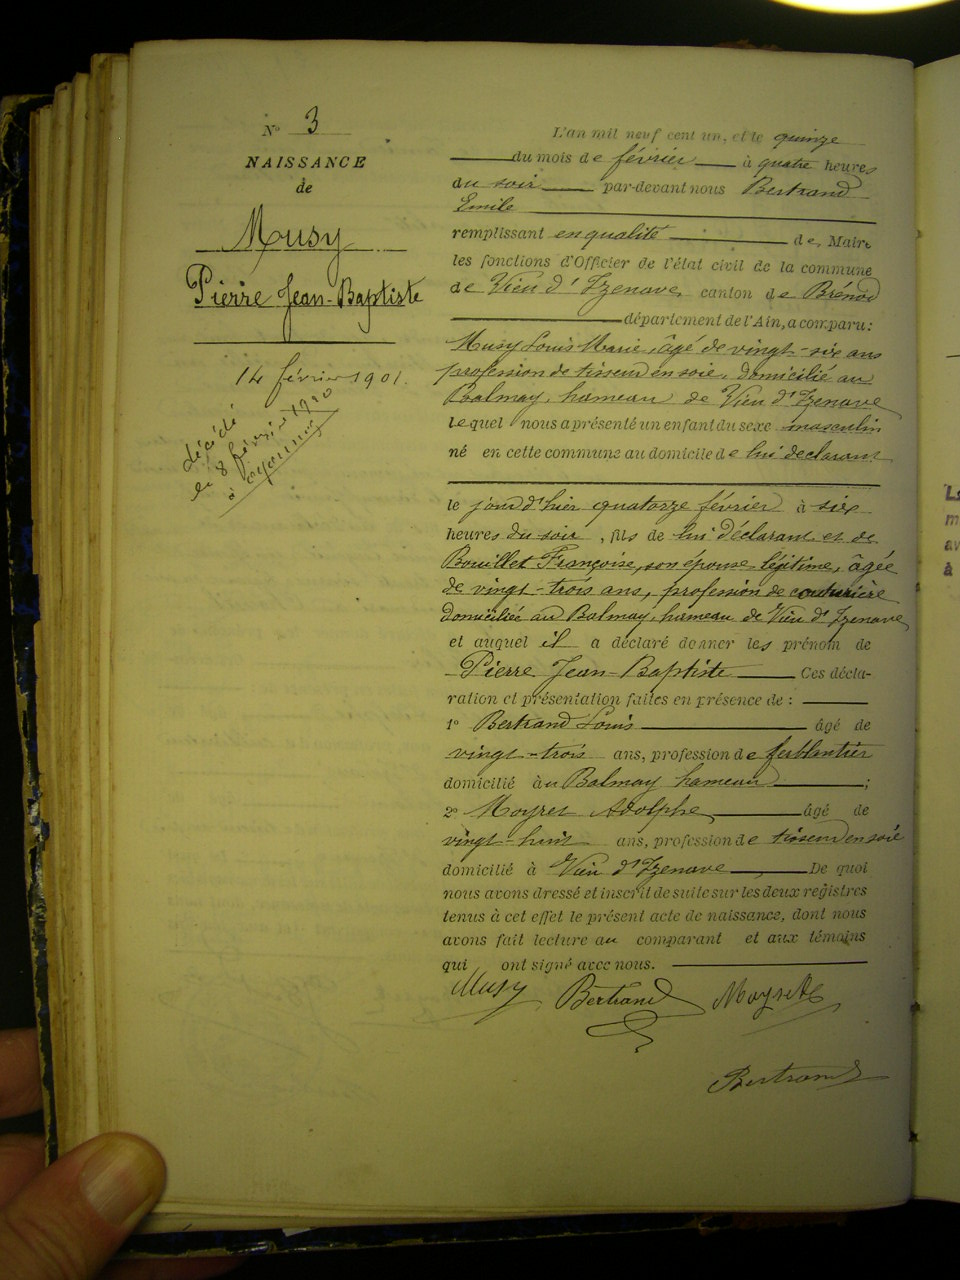 N° 3
NAISSANCE
de
Musy
Pierre Jean-Baptiste
14 février 1901.
décédé
le 8 février
à
L'an mil neuf cent un, et le quinze
du mois de février à quatre heures
du soir par-devant nous Bertrand
Emile
remplissant en qualité de Maire
les fonctions d'Officier de l'état civil de la commune
de Vieu d'Izenave, canton de Brénod
département de l'Ain, a comparu:
Musy Louis Marie, âgé de vingt-six ans
profession de tisseur en soie, domicilié au
Balmay, hameau de Vieu d'Izenave
lequel nous a présenté un enfant du sexe masculin
né en cette commune au domicile de lui déclarant
le jour d'hier quatorze février à six
heures du soir, fils de lui déclarant et de
Bouillet Françoise, son épouse légitime, âgée
de vingt-trois ans, profession de couturière
domiciliée au Balmay, hameau de Vieu d'Izenave
et auquel il a déclaré donner les prénom de
Pierre Jean-Baptiste Ces décla-
ration et présentation faites en présence de :
1° Bertrand Louis âgé de
vingt-trois ans, profession de ferblantier
domicilié au Balmay hameau ;
2° Moyret Adolphe âgé de
vingt-huit ans, profession de tisseur en soie
domicilié à Vieu d'Izenave De quoi
nous avons dressé et inscrit de suite sur les deux registres
tenus à cet effet le présent acte de naissance, dont nous
avons fait lecture au comparant et aux témoins
qui ont signé avec nous.
Musy Bertrand Moyret A
Bertrand